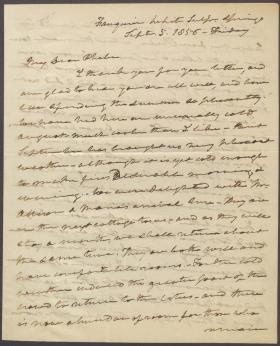 Fauquier White Sulpr Springs
Sept 5. 1856 - Friday
My Dear Phebe
I thank you for your letter and
am glad to hear you are all well and have
been spending the summer so pleasantly.
we have had here an unusually cold
august much cooler than I like -
September has brought us very pleasant
weather - although it is yet cold enough
to make fires desirable morning &
evening. We were delighted with Mr
& Maria's arrival here - they are
in the next cottage to us, and as they will
stay a month, we shall return about
the same time. They are both well and
have comfortable rooms - The cold
weather induced the greater part of the
crowd to return to the cities - and there
is now abundance of room for those who
remain